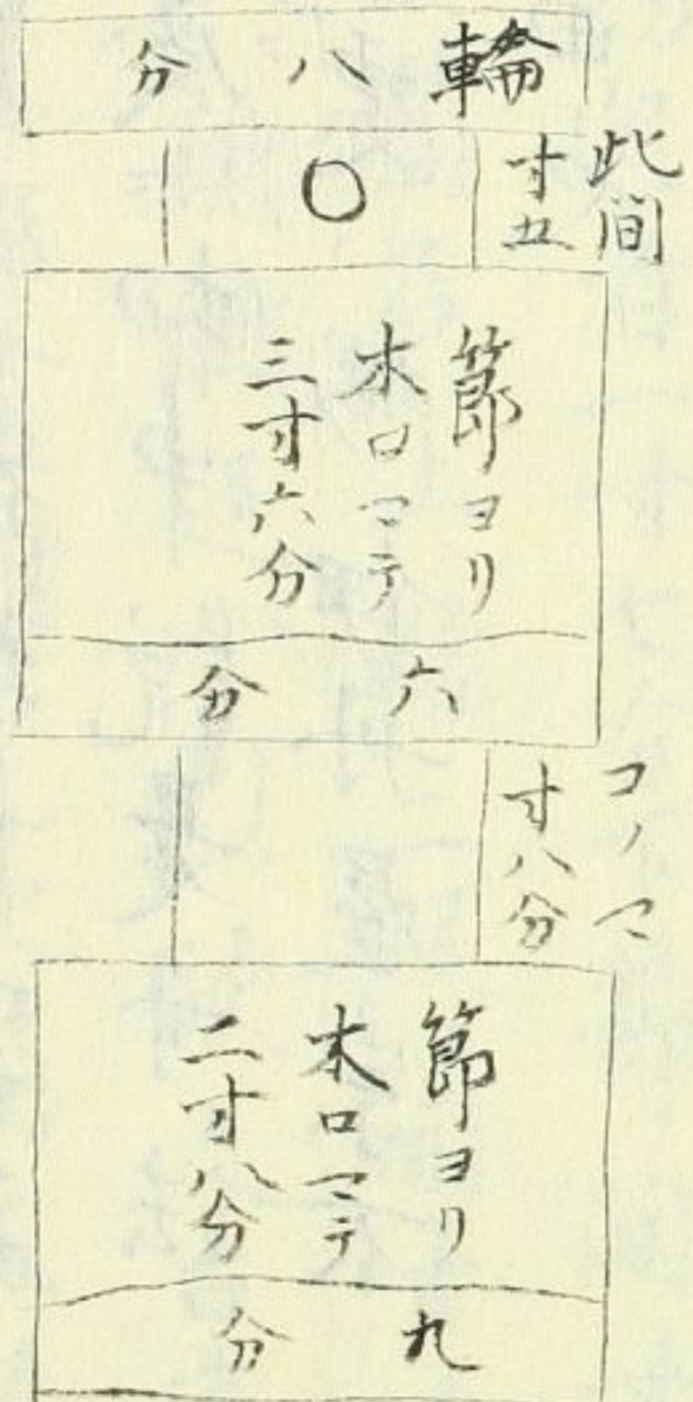 輪八分
此間
寸五
節ヨリ
木口マテ
三寸六分
六分
コノマ
寸八分
節ヨリ
木口マテ
二寸八分
九分